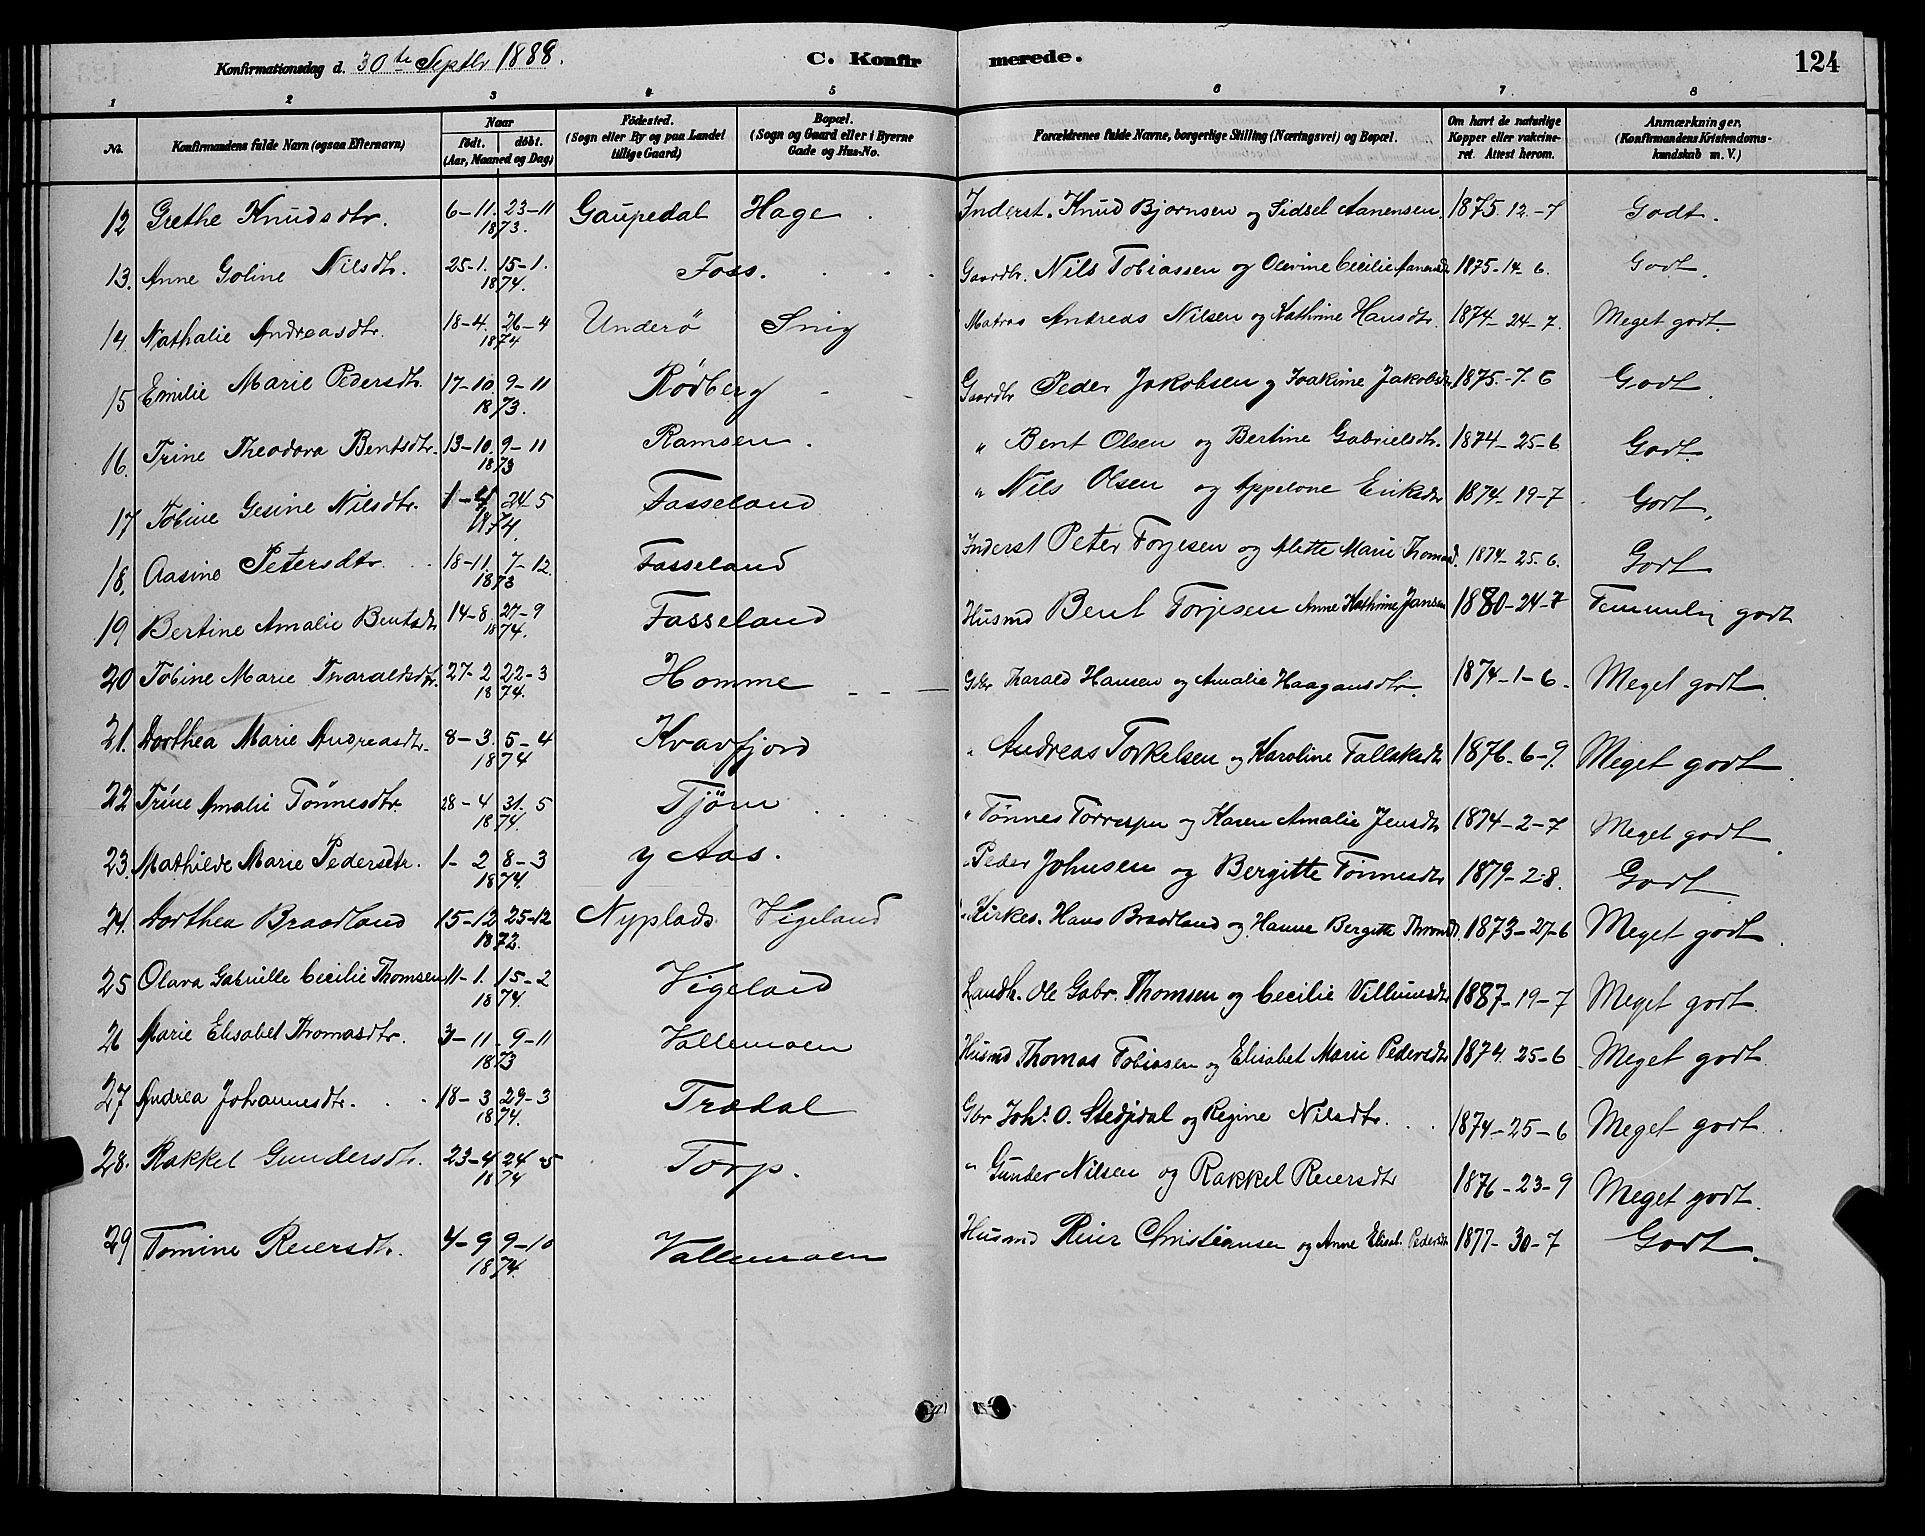 Konfirmationsdag d. 30te Septbr 1888. C. Konfirmerede. 124
1 2 3 4 5 6 7 8
No. Konfirmandens fulde Navn (ogsaa Efternavn) Naar födt. döbt. (Aar, Maaned og Dag) Födested. (Sogn eller By og paa Landet tillige Gaard) Bopæl. (Sogn og Gaard eller i Byerne Gade og Hus-No. Forældrenes fulde Navne, borgerlige Stilling (Næringsvei) og Bopæl. Om havt de naturlige Kopper eller vakcineret. Attest herom. Anmærkninger. (Konfirmandens Kristendomskundskab m. V.)
12 Grethe Knudsdtr. 6-11. 23-11 1873. Gaupedal Hage Inderst. Knud Bjornsen og Sidsel Aanensen. 1875. 12.-7 Godt.
13. Anne Goline Nilsdtr. 25-1. 15-1. 1874. Foss. Gaardbr. Nils Tobiassen og Olevine Cecilie Aanensdtr 1875-14-6. Godt.
14. Nathalie Andreasdtr. 18-4. 26-4 1874 Underø Snig Matros Andreas Nilsen og Kathrine Hansdtr. 1874-24-7. Meget godt.
15 Emilie Marie Pedersdtr. 17-10. 9-11 1873. Rødberg Gaardbr Peder Jakobsen og Joakime Jakobsdtr 1875.-7.6 Godt.
16. Trine Theodora Bentsdtr. 13-10. 9-11 1873 Ramsen. " Bent Olsen og Bertine Gabrielsdtr. 1874-25-6 Godt.
17 Tobine Gesine Nilsdtr. 1-4 24-5 1874. Fasseland " Nils Olsen og Appelone Eriksdtr 1874-19-7 Godt.
18. Aasine Petersdtr. 18-11. 7-12. 1873 Fasseland Inderst Peter Torjesen og Alette Marie Thomasd. 1874-25-6. Godt
19 Bertine Amalie Bentsdtr 14-8. 27-9 1874. Fasseland Husmd Bent Torjesen Anne Kathrine Jansen 1880-24-7 Temmelig godt
20 Tobine Marie Tharaldsdtr. 27-2 22-3 1874. Homme Gbr Tharald Hansen og Amalie Haagansdtr. 1874-1-6. Meget godt.
21. Dorthea Marie Andreasdtr. 8-3. 5-4 1874 Kvavfjord " Andreas Torkelsen og Karoline Fallaksdtr 1876-6-9. Meget godt.
22 Trine Amalie Tönnesdtr. 28-4 31.5 1874. Tjøm " Tönnes Torresen og Karen Amalie Jensdtr 1874-2-7 Meget godt.
23. Mathilde Marie Pedersdtr. 1-2 8-3 1874. y Aas. " Peder Johnsen og Bergitte Tönnesdtr 1879-2-8. Godt
24. Dorthea Braadland 15-12 25-12 1872. Nyplads Vigeland Kirkes. Hans Braadland og Hanne Bergitte 1873-27-6 Meget godt.
25 Olava Gabrielle Cecilie Thomsen 11-1. 15-2 1874. Vigeland Landh. Ole Gabr. Thomsen og Cecilie Villumsdtr 1887-19-7 Meget godt.
26 Marie Elisabet Thomasdtr. 3-11. 9-11 1873 Vallemoen Husmd Thomas Tobiasen og Elisabet Marie Pedersdtr 1874. 25-6 Meget godt.
27 Andrea Johannesdtr. 18-3 29-3 1874. Trædal Gbr Johs. O. Stedjedal og Regine Nilsdtr. 1874-25-6 Meget godt.
28. Rakkel Gundersdtr. 23-4 24-5 1874 Torp. " Gunder Nilsen og Rakkel Reiersdtr 1876-23-9 Meget godt.
29 Tomine Reiersdtr. 4-9 9-10 1874. Vallemoen Husmd Reier Christiansen og Anne Elisab. Pedersdtr 1877-30-7 Godt.